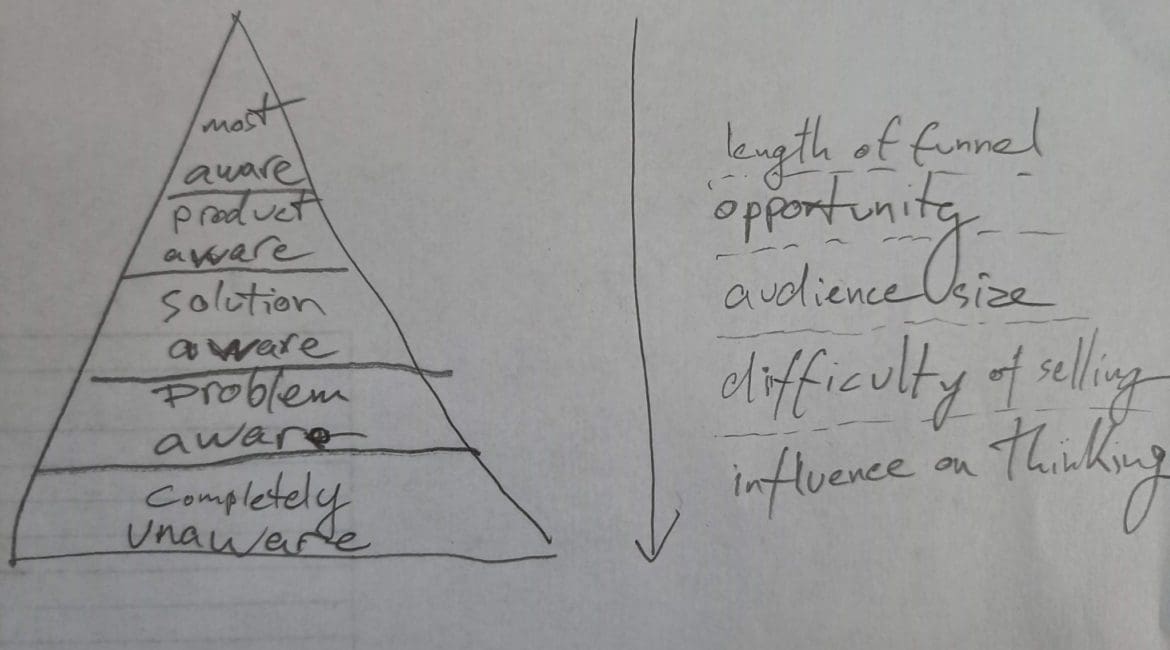 most
aware
product
aware
solution
aware
problem
aware
completely
unaware
length of funnel
opportunity
audience size
difficulty of selling
influence on thinking